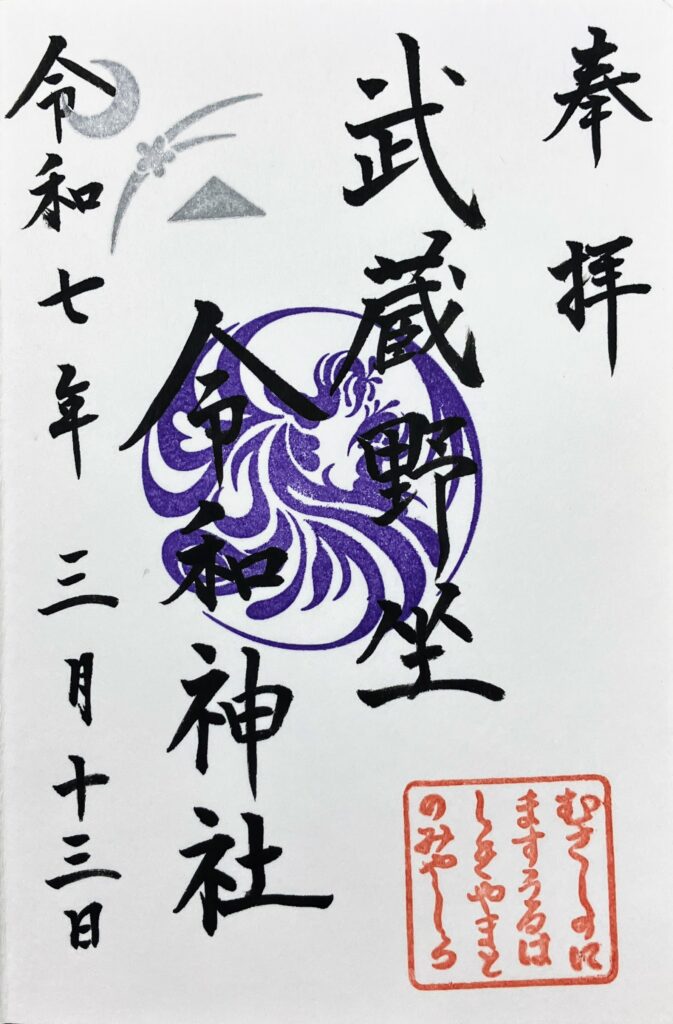 奉拝
武蔵野坐
令和神社
令和七年 三月十三日
むさしのに
ますうるは
しきやまと
のみやしろ